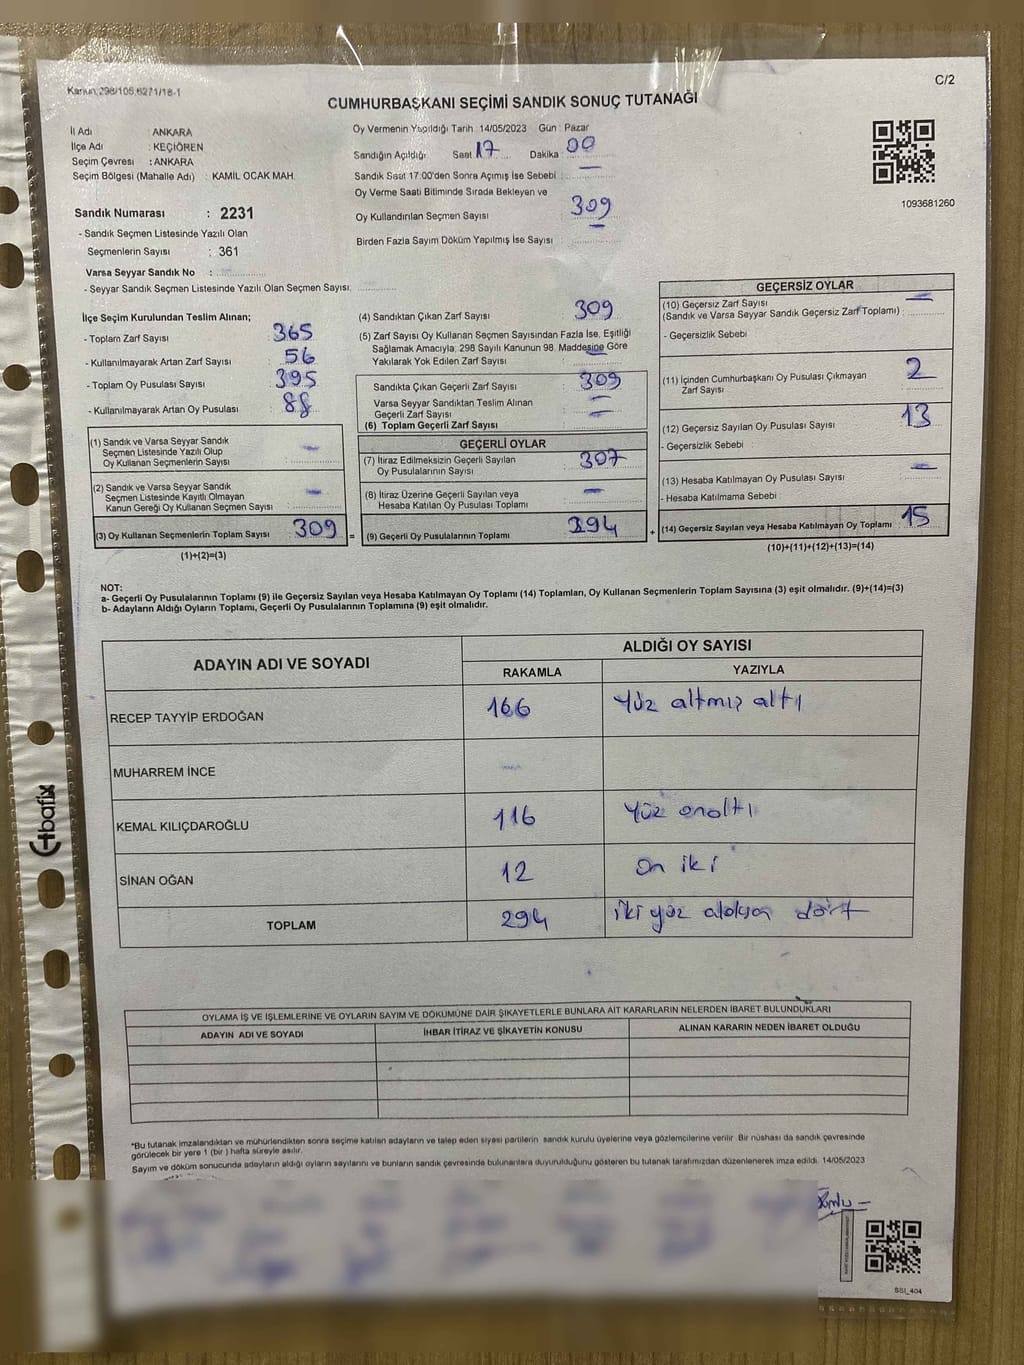 Kanun, 298/105,6271/18-1
C/2
CUMHURBAŞKANI SEÇİMİ SANDIK SONUÇ TUTANAĞI
İl Adı : ANKARA
İlçe Adı : KEÇİÖREN
Seçim Çevresi : ANKARA
Seçim Bölgesi (Mahalle Adı) : KAMİL OCAK MAH.
Sandık Numarası : 2231
- Sandık Seçmen Listesinde Yazılı Olan
Seçmenlerin Sayısı : 361
Varsa Seyyar Sandık No :
- Seyyar Sandık Seçmen Listesinde Yazılı Olan Seçmen Sayısı:
Oy Vermenin Yapıldığı Tarih 14/05/2023 Gün : Pazar
Sandığın Açıldığı Saat 17 Dakika 00
Sandık Saat 17:00'den Sonra Açımış İse Sebebi : —
Oy Verme Saati Bitiminde Sırada Bekleyen ve
Oy Kullandırılan Seçmen Sayısı : 309
Birden Fazla Sayım Döküm Yapılmış İse Sayısı : —
1093681260
İlçe Seçim Kurulundan Teslim Alınan;
- Toplam Zarf Sayısı : 365
- Kullanılmayarak Artan Zarf Sayısı : 56
- Toplam Oy Pusulası Sayısı : 395
- Kullanılmayarak Artan Oy Pusulası : 88
(1) Sandık ve Varsa Seyyar Sandık
Seçmen Listesinde Yazılı Olup
Oy Kullanan Seçmenlerin Sayısı : —
(2) Sandık ve Varsa Seyyar Sandık
Seçmen Listesinde Kayıtlı Olmayan
Kanun Gereği Oy Kullanan Seçmen Sayısı : —
(3) Oy Kullanan Seçmenlerin Toplam Sayısı : 309 =
(1)+(2)=(3)
(4) Sandıktan Çıkan Zarf Sayısı : 309
(5) Zarf Sayısı Oy Kullanan Seçmen Sayısından Fazla İse, Eşitliği
Sağlamak Amacıyla, 298 Sayılı Kanunun 98. Maddesine Göre
Yakılarak Yok Edilen Zarf Sayısı : —
Sandıkta Çıkan Geçerli Zarf Sayısı : 309
Varsa Seyyar Sandıktan Teslim Alınan
Geçerli Zarf Sayısı : —
(6) Toplam Geçerli Zarf Sayısı : —
GEÇERLİ OYLAR
(7) İtiraz Edilmeksizin Geçerli Sayılan
Oy Pusulalarının Sayısı : 307
(8) İtiraz Üzerine Geçerli Sayılan veya
Hesaba Katılan Oy Pusulası Toplamı : —
(9) Geçerli Oy Pusulalarının Toplamı : 294 +
GEÇERSİZ OYLAR
(10) Geçersiz Zarf Sayısı
(Sandık ve Varsa Seyyar Sandık Geçersiz Zarf Toplamı) : —
- Geçersizlik Sebebi :
(11) İçinden Cumhurbaşkanı Oy Pusulası Çıkmayan
Zarf Sayısı : 2
(12) Geçersiz Sayılan Oy Pusulası Sayısı : 13
- Geçersizlik Sebebi :
(13) Hesaba Katılmayan Oy Pusulası Sayısı : —
- Hesaba Katılmama Sebebi :
(14) Geçersiz Sayılan veya Hesaba Katılmayan Oy Toplamı : 15
(10)+(11)+(12)+(13)=(14)
NOT:
a- Geçerli Oy Pusulalarının Toplamı (9) ile Geçersiz Sayılan veya Hesaba Katılmayan Oy Toplamı (14) Toplamları, Oy Kullanan Seçmenlerin Toplam Sayısına (3) eşit olmalıdır. (9)+(14)=(3)
b- Adayların Aldığı Oyların Toplamı, Geçerli Oy Pusulalarının Toplamına (9) eşit olmalıdır.
ADAYIN ADI VE SOYADI
ALDIĞI OY SAYISI
RAKAMLA YAZIYLA
RECEP TAYYİP ERDOĞAN 166 Yüz altmış altı
MUHARREM İNCE —
KEMAL KILIÇDAROĞLU 116 Yüz onaltı
SİNAN OĞAN 12 On iki
TOPLAM 294 iki yüz doksan dört
OYLAMA İŞ VE İŞLEMLERİNE VE OYLARIN SAYIM VE DÖKÜMÜNE DAİR ŞİKAYETLERLE BUNLARA AİT KARARLARIN NELERDEN İBARET BULUNDUKLARI
ADAYIN ADI VE SOYADI İHBAR İTİRAZ VE ŞİKAYETİN KONUSU ALINAN KARARIN NEDEN İBARET OLDUĞU
*Bu tutanak imzalandıktan ve mühürlendikten sonra seçime katılan adayların ve talep eden siyasi partilerin sandık kurulu üyelerine veya gözlemcilerine verilir. Bir nüshası da sandık çevresinde
görülecek bir yere 1 (bir) hafta süreyle asılır.
Sayım ve döküm sonucunda adayların aldığı oyların sayılarını ve bunların sandık çevresinde bulunanlara duyurulduğunu gösteren bu tutanak tarafımızdan düzenlenerek imza edildi. 14/05/2023
SSI_404
bafix